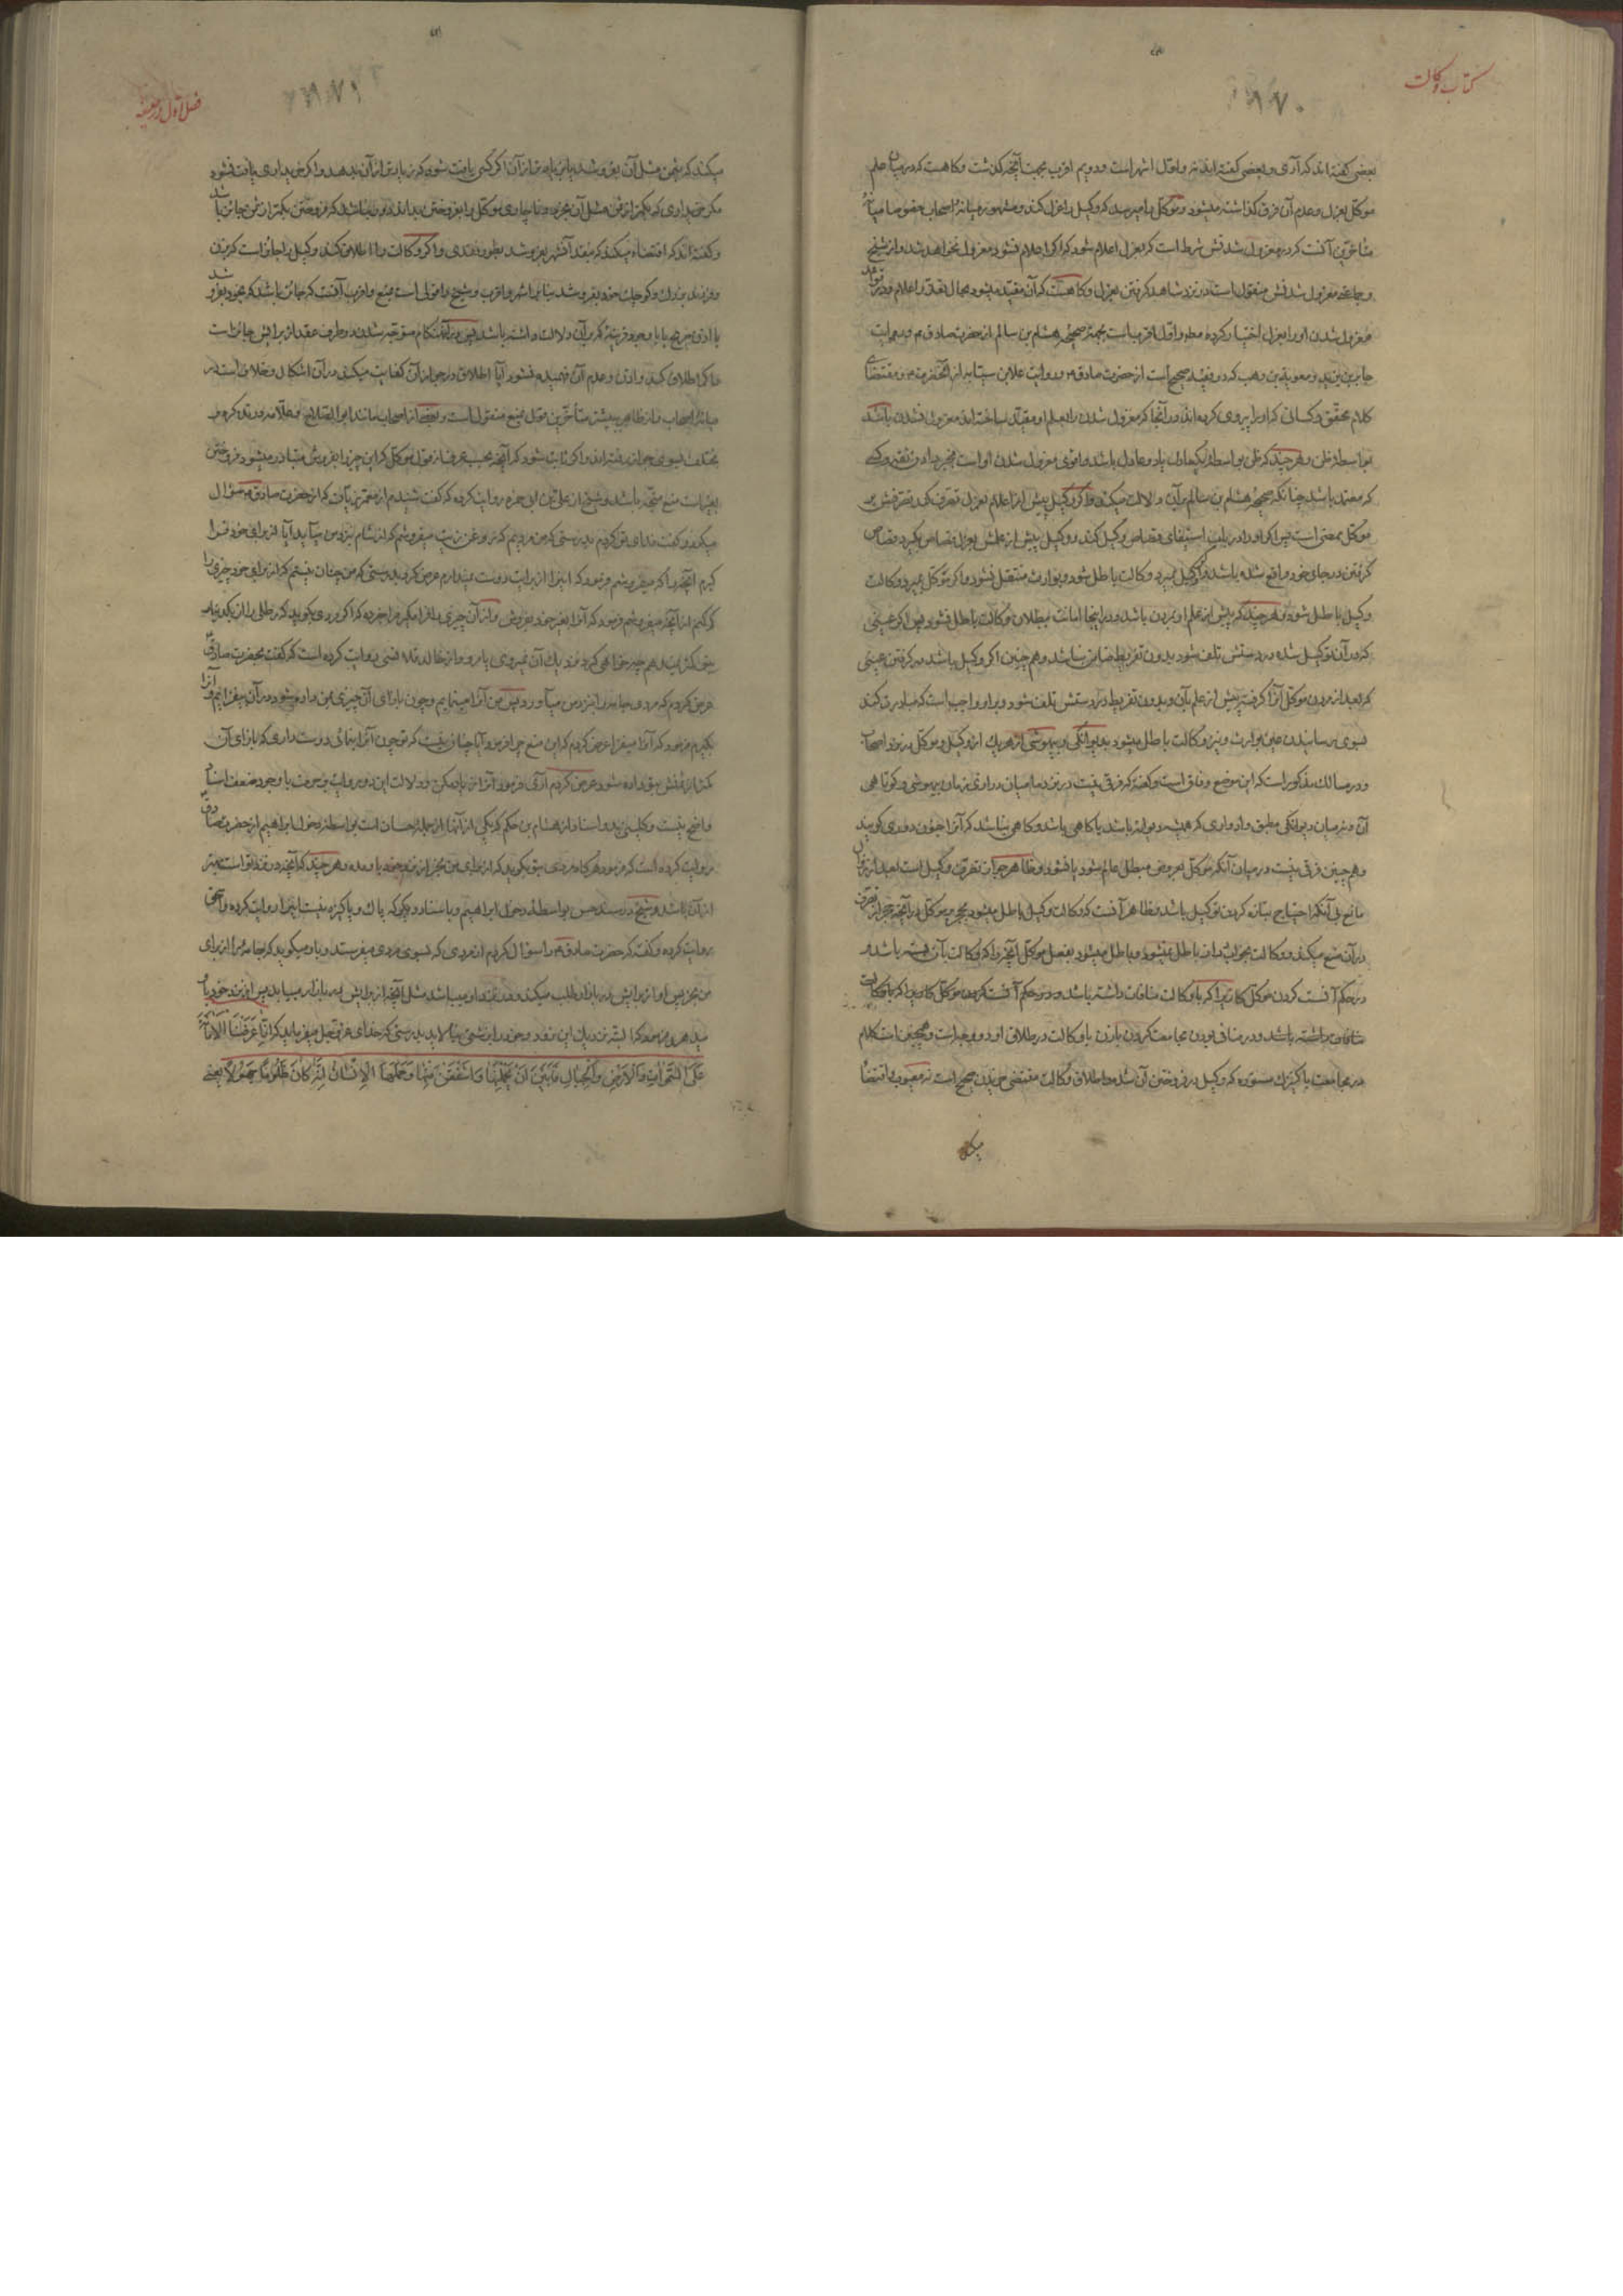 کتاب وکالت
۱۸۷۰
بعضی گفته‌اند که آری و بعضی گفته‌اند نه و اول اشهر است و دویم اقرب بجهت آنچه گذشت و گاهست که در میان علم
موکل بعزل و عدم آن فرق گذاشته میشود و موکل را میرسد که وکیل را عزل کند و مشهور میانهٔ اصحاب خصوصا میانهٔ
متاخرین آنست که در معزول شدنش شرط است که بعزل اعلام شود که اگر اعلام نشود معزول نخواهد شد و از شیخ
و جماعتی معزول شدنش منقول است در نزد شاهد گرفتن بعزل و گاهست که آن مقید میشود بحال تعذر اعلام و در قواعد
معزول شدن او را بعزل اختیار کرده مطلقا و اول اقربست بجهة صحیحهٔ هشام بن سالم از حضرت صادق ع و روایت
جابر بن یزید و معویة بن وهب که در فقیه صحیح است از حضرت صادق ع و روایت علا بن سیابه از آنحضرت ع و مقتضای
کلام محقق و کسانی که او را پیروی کرده‌اند در آنجا که معزول شدن را بعلم او مقید ساخته‌اند معزول نشدن باشد
بواسطهٔ ظن و هر چند که ظن بواسطهٔ یکعادل یا دو عادل باشد و اقوی معزول شدن او است بخبر دادن ثقه و کسی
که معتمد باشد چنانکه صحیحهٔ هشام بن سالم بر آن دلالت میکند و اگر وکیل پیش از اعلام بعزل تصرف کند تصرفش بر
موکل ممضی است پس اگر او را در باب استیفای قصاص وکیل کند و وکیل پیش از علمش بعزل قصاص بگیرد قصاص
گرفتن در جای خود واقع شده باشد و اگر وکیل بمیرد وکالت باطل شود و بوارث منتقل نشود و اگر موکل بمیرد وکالت
وکیل باطل شود و هر چند که پیش از علم او بمردن باشد و در اینجا امانت ببطلان وکالت باطل نشود پس اگر عینی
که در آن توکیل شده در دستش تلف شود بدون تفریط ضامن نباشد و هم چنین اگر وکیل باشد در گرفتن عینی
که بعد از مردن موکل آنرا گرفته پیش از علم بآن و بدون تفریط در دستش تلف شود و بر او واجب است که مبادرت کند
بسوی رسانیدن عین بوارث و نیز وکالت باطل میشود بدیوانگی و بیهوشی از هر یک از وکیل و موکل در نزد اصحاب
و در مسالک مذکور است که این موضع وفاق است و گفته که فرقی نیست در نزد ما میان درازی زمان بیهوشی و کوتاهی
آن و نه میان دیوانگی مطبق و ادواری که همیشه دیوانه باشد یا گاهی باشد و گاهی نباشد که آنرا جنون دوری گویند
و هم چنین فرقی نیست در میان آنکه موکل بعروض مبطل عالم شود یا نشود و ظاهر جواز تصرف وکیل است بعد از زوال
مانع بی آنکه احتیاج بتازه کردن توکیل باشد و ظاهر آنست که وکالت وکیل باطل میشود بحجر موکل در آنچه حجر از تصرف
در آن منع میکند و وکالت بخواب زیاد باطل نمیشود و باطل میشود بفعل موکل آنچیز را که وکالت بآن بسته باشد و
در حکم آنست کردن موکل کاریرا که با وکالت منافات داشته باشد و در حکم آنست کردن موکل کاریرا که با وکالت
منافات داشته باشد و در منافی بودن مجامعت کردن با زن با وکالت در طلاق او دو وجه است و همچنین است کلام
در مجامعت با کنیزک مستوره که وکیل در فروختن آن شده و اطلاق وکالت مقتضی خریدن صحیح است نه معیوب و اقتضا
میکند
فصل اول در
۱۸۷۱
میکند که بثمن مثل آن بفروشد یا بزیاده از آن اگر کسی یافت شود که زیادتر از آن بدهد و اگر خریداری یافت نشود
مگر خریداری که بکمتر از ثمن مثل آن بخرد و ناچاری موکل را بفروختن بداند دور نباشد که فروختن بکمتر از ثمن جائز باشد
و گفته‌اند که اقتضاء میکند که بنقد آنشهر بفروشد بطور نقدی و اگر وکالت را اطلاق کند وکیل را جائز است که بزن
و فرزند بزرگ و کوچک خود بفروشد بنا بر اشهر و اقرب و شیخ را قولی است بمنع و اقرب آنست که جائز باشد که بخود بفروشد
با اذن صریح یا با وجود قرینهٔ که بر آن دلالت داشته باشد پس در آنهنگام متوجه شدن دو طرف عقد از برایش جائز است
و اگر اطلاق کند و اذن و عدم آن فهمیده نشود آیا اطلاق در جواز آن کفایت میکند در آن اشکال و خلاف است در
میانهٔ اصحاب و از ظاهر بیشتر متأخرین قول بمنع منقول است و بعضی از اصحاب مانند ابو الصلاح و علامه در تذکره و
مختلف بسوی جواز رفته‌اند و اگر ثابت شود که آنچه بحسب عرف از قول موکل که این چیز را بفروش متبادر میشود فروختن
بغیر است منع متجه باشد و شیخ از علی بن ابی حمزه روایت کرده که گفت شنیدم از معمر زیات که از حضرت صادق ع سؤال
میکرد و گفت فدای تو گردم بدرستی که من مردیم که روغن زیت میفروشم که از شام نزد من میآید آیا از برای خود فرا
گیرم آنچه را که میفروشم فرمود که اینرا از برایت دوست نمیدارم عرض کرد بدرستی که من چنان نیستم که از برای خود چیزی را
کم کنم از آنچه میفروشم فرمود که آنرا بغیر خود بفروش و از آن چیزی را فرا مگیر مرا خبر ده که اگر مردی بگوید که رطلی را از آن بکم
بتو کمتر نمیدهم چه خواهی کرد نزدیک آن نمیروی یا مرو و از خالد قلانسی روایت کرده است که گفت بحضرت صادق ع
عرض کردم که مردی جامه را بنزد من میآورد پس من آنرا مینمایم و چون بازای آن چیزی بمن داده شود در آن میفزایم و آنرا
بگیرم فرمود که آنرا میفزا عرض کردم که این منع چرا فرمود آیا چنان نیست که تو چون آنرا بنمائی دوست داری که بازای آن
کمتر از ثمنش بتو داده شود عرض کردم آری فرمود آنرا زیاد مکن و دلالت این دو روایت بر حرمت با وجود ضعف اسناد
واضح نیست و کلینی بدو اسناد از هشام بن حکم که یکی از آنها از جملهٔ حسان است بواسطهٔ دخول ابراهیم از حضرت صادق ع
روایت کرده است که فرمود هرگاه مردی بتو بگوید که از برای من بخر از نزد خود باو مده و هر چند که آنچه در نزد تو است بهتر
از آن باشد و شیخ در سند حسن بواسطهٔ دخول ابراهیم و باسناد دیگر که پاک و پاکیزه نیست اینرا روایت کرده و اسحق
روایت کرده و گفت که حضرت صادق ع را سؤال کردم از مردی که بسوی مردی میفرستد و باو میگوید که جامهٔ را از برای
من بخر پس او از برایش در بازار طلب میکند و در نزد او میباشد مثل آنچه از برایش در بازار میباید پس او از نزد خود باو
میدهد فرمود که البته نزدیک این نرود و خود را بزشتی نیالاید بدرستی که خدای عز و جل میفرماید که اِنّا عَرَضْنَا الْاَمانَةَ
عَلَی السَّمواتِ وَالْاَرْضِ وَالْجِبالِ فَاَبَیْنَ اَنْ یَحْمِلْنَها وَاَشْفَقْنَ مِنْها وَحَمَلَهَا الْاِنْسانُ اِنَّهُ کانَ ظَلُوماً جَهُولاً یعنی